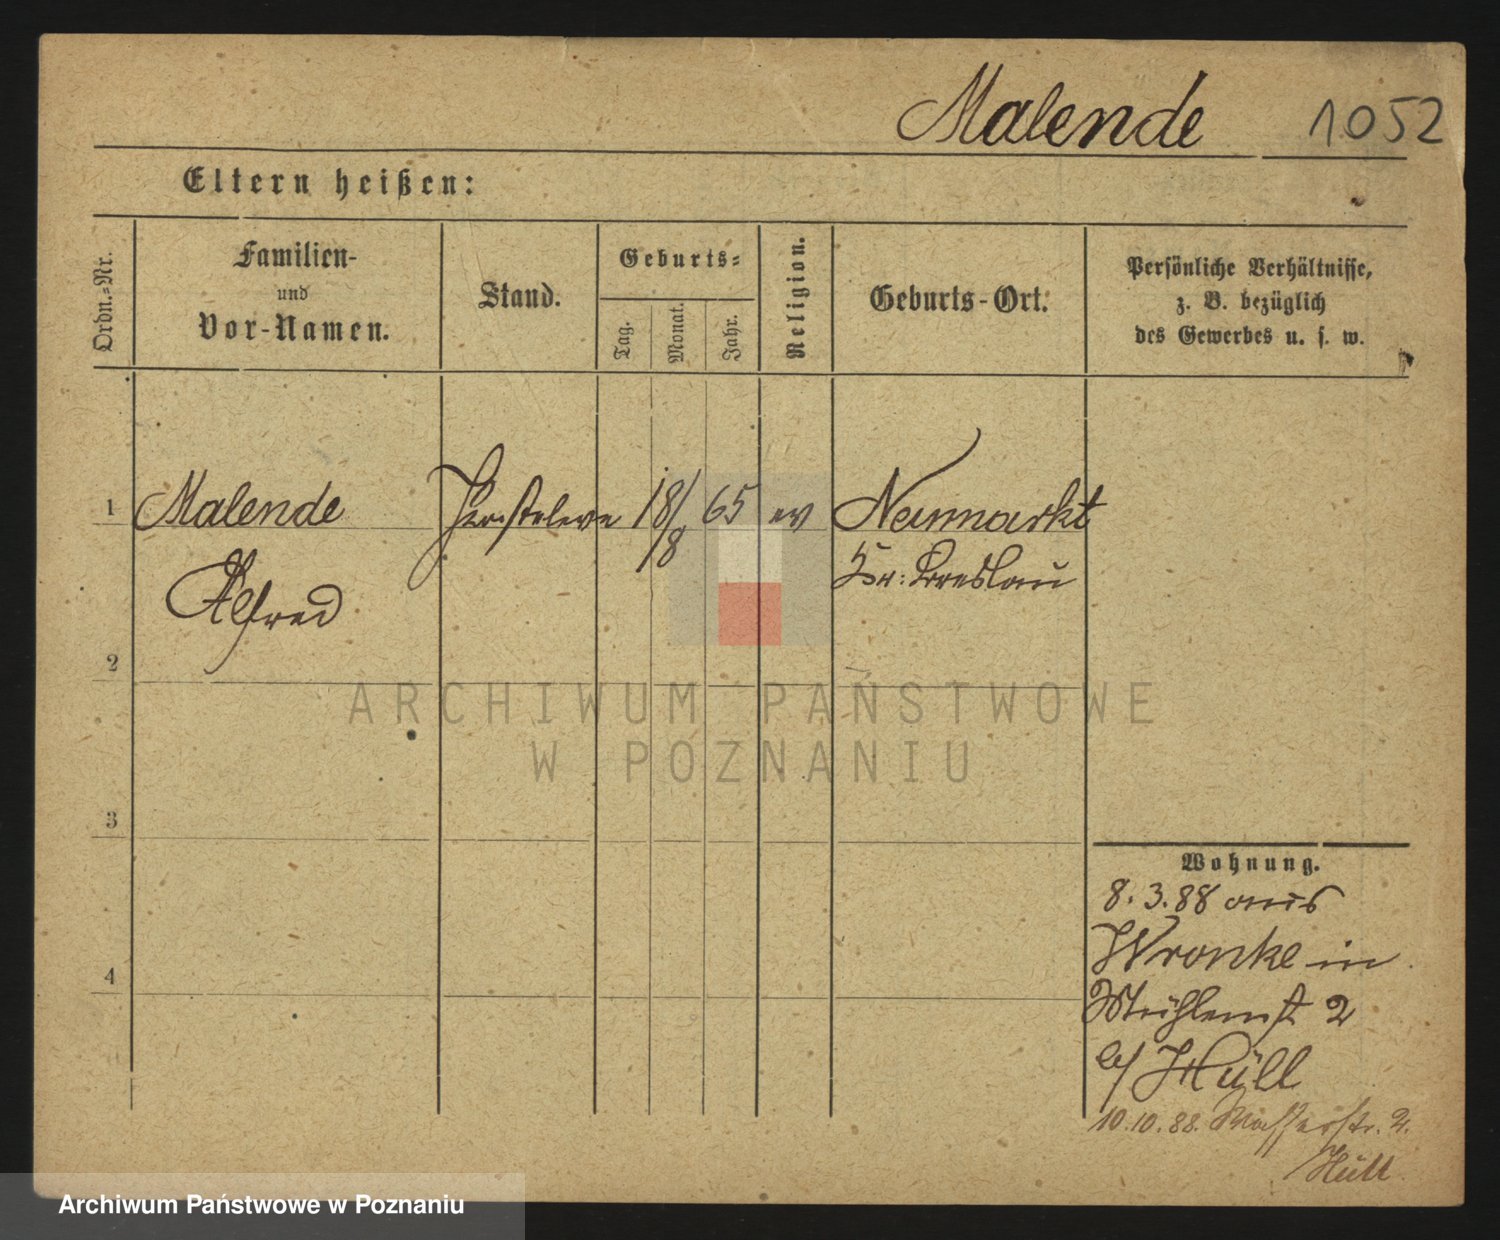 Malende 1052
Eltern heißen:
Ordn.-Nr.
Familien-
und
Vor-Namen.
Stand.
Geburts-
Tag.
Monat.
Jahr.
Religion.
Geburts-Ort.
Persönliche Verhältnisse,
z. B. bezüglich
des Gewerbes u. s. w.
1 Malende 18/8 65 ev Neumarkt
Alfred Kr: Breslau
2
3
4
ARCHIWUM PAŃSTWOWE
W POZNANIU
Wohnung.
8.3.88 aus
Wronke in
Mühlenst 2
b/ Hüll
10.10.88. Wasserstr. 2.
Hüll
Archiwum Państwowe w Poznaniu